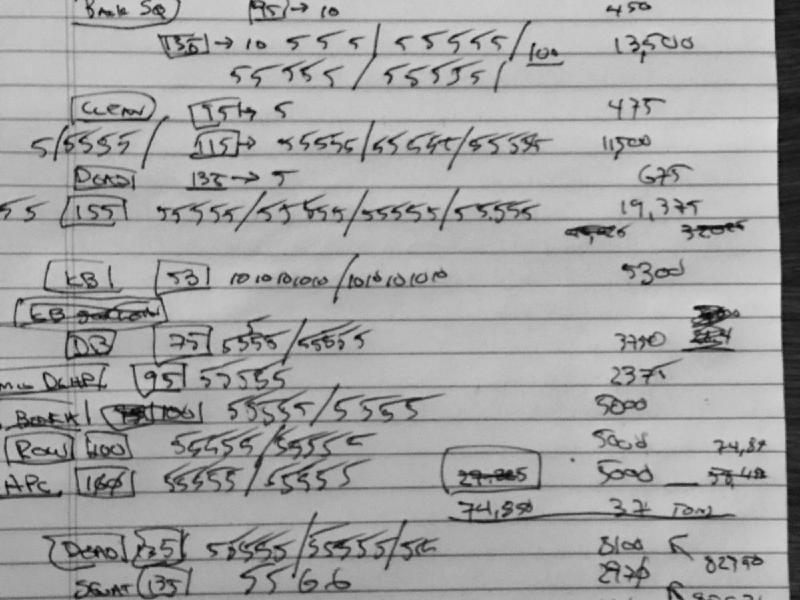 Back SQ 95 → 10 450
135 → 10 5 5 5 / 5 5 5 5 5 / 100 13,500
5 5 5 5 5 / 5 5 5 5 5 /
CLEAN 95 → 5 475
5/5555 / 115 → 55555/55555/55555 11500
DEAD 135 → 5 675
55 155 55555/55555/55555/55555 19,375
KB 53 1010101010/1010101010 5300
KB
DB 75 5555/55555 3750
95 55555 2375
BENCH 100 55555/55555 5000
ROW 100 55555/55555 5000
APC 100 55555/55555 5000
74,850 37 Tons
DEAD 135 55555/55555/55 8100
SQUAT 135 5 5 6 6 2970 82950